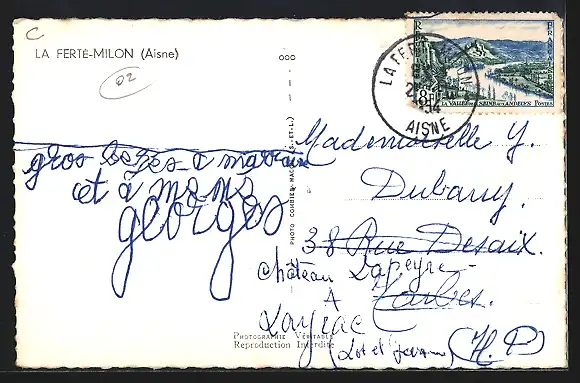 C
LA FERTÉ-MILON (Aisne)
02
gros bezes a marraine
et à mons
georges
PHOTO COMBIER MACON (S.-ET-L.)
LA FERTE-MILON
AISNE
8F
LA VALLÉE DE LA SEINE AUX ANDELYS POSTES
Mademoiselle Y.
Dubarry.
38 Rue Desaix.
Château Lapeyre
à Tarbes.
Layrac
(Lot et Garonne)
(H. P)
Photographie Véritable
Reproduction Interdite